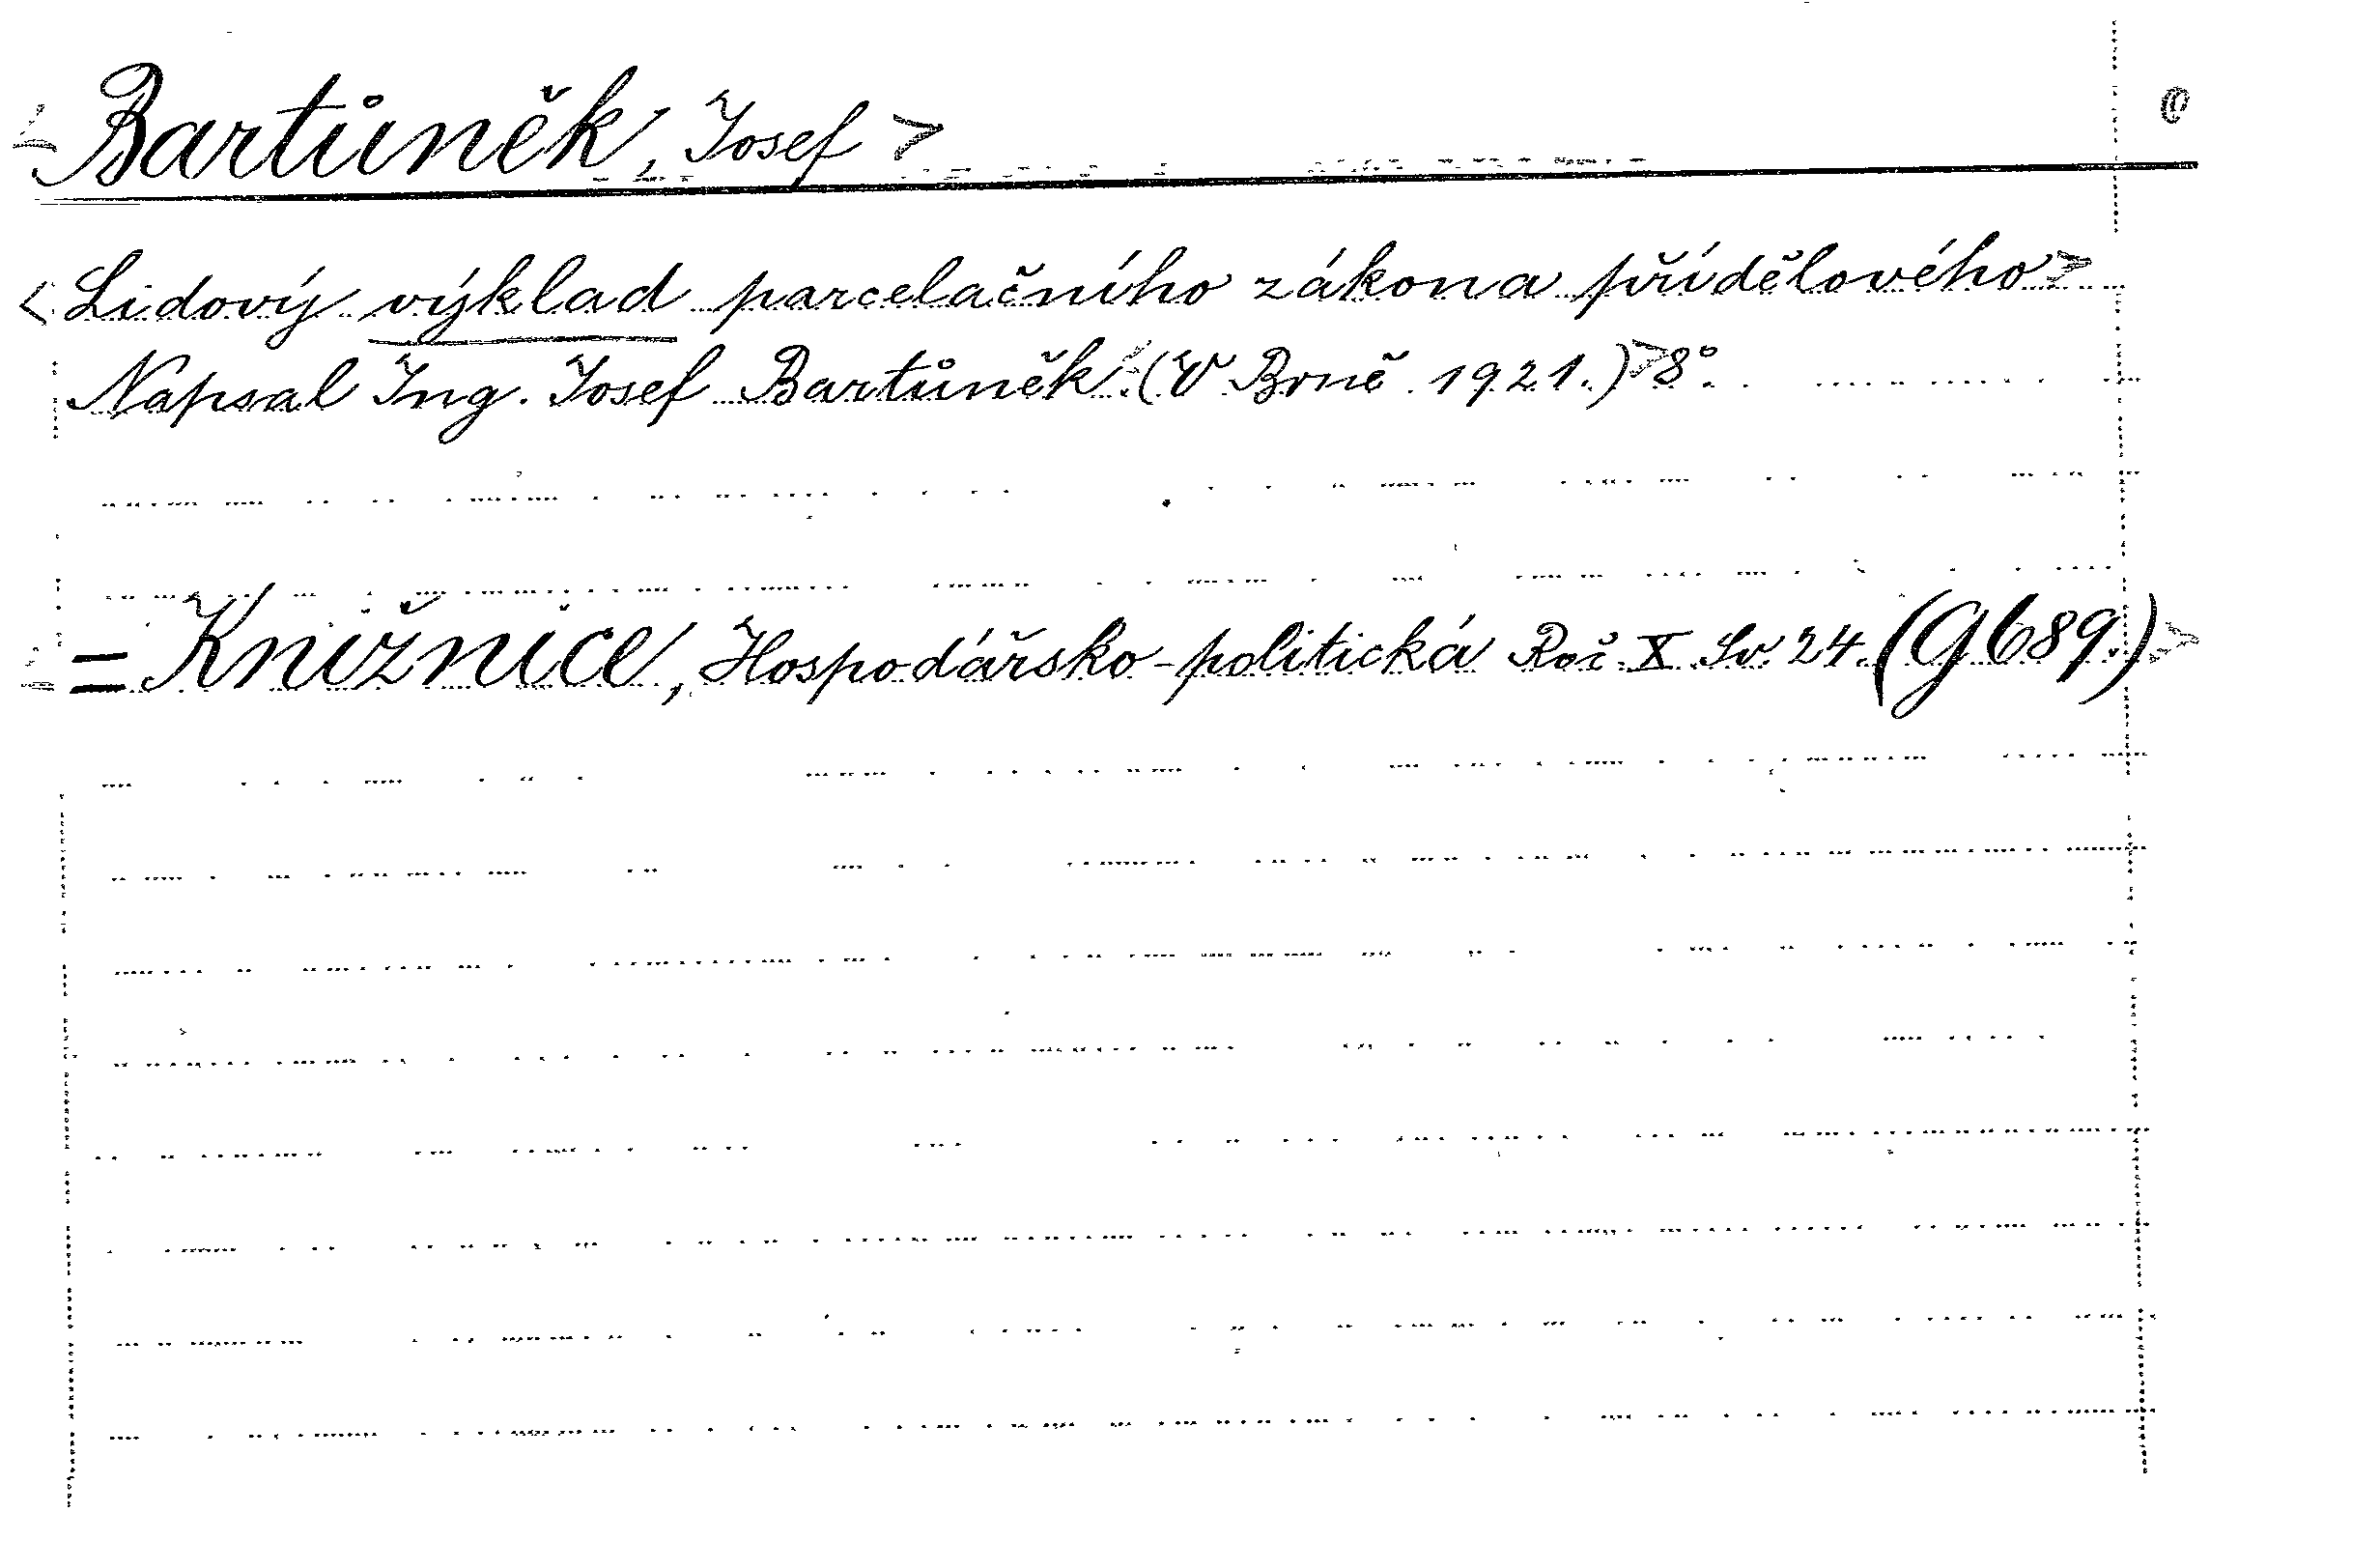 Bartůněk, Josef >
< Lidový výklad parcelačního zákona přídělového >
Napsal Ing. Josef Bartůněk. (V Brně 1921.) > 8°.
= Knižnice, Hospodářsko-politická Roč. X Sv. 24. (G 689.) >